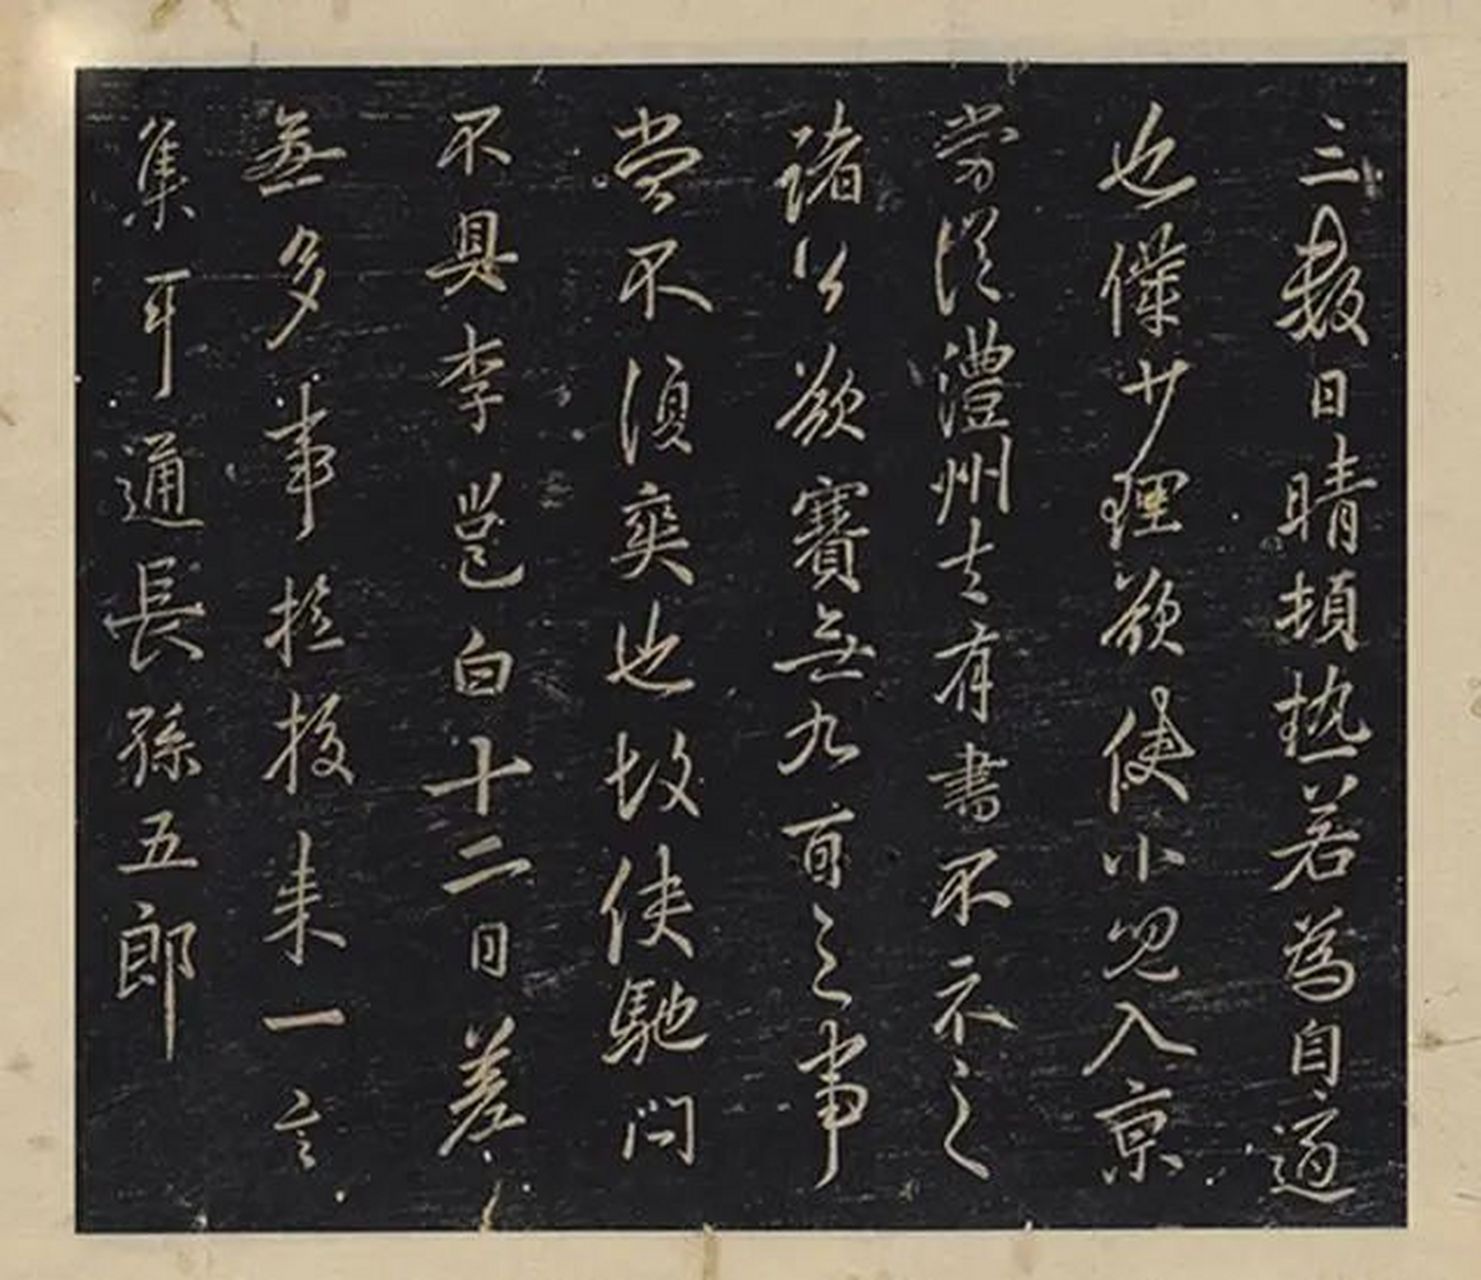 三數日晴頓热若為自適
也僕少理欲使小兒入京
勞從澧州去有書不示之
諸公欲賽無九百之事
当不須奕也故使馳问
不具李邕白十二日差
無多事授来一言
集耳通長孫五郎